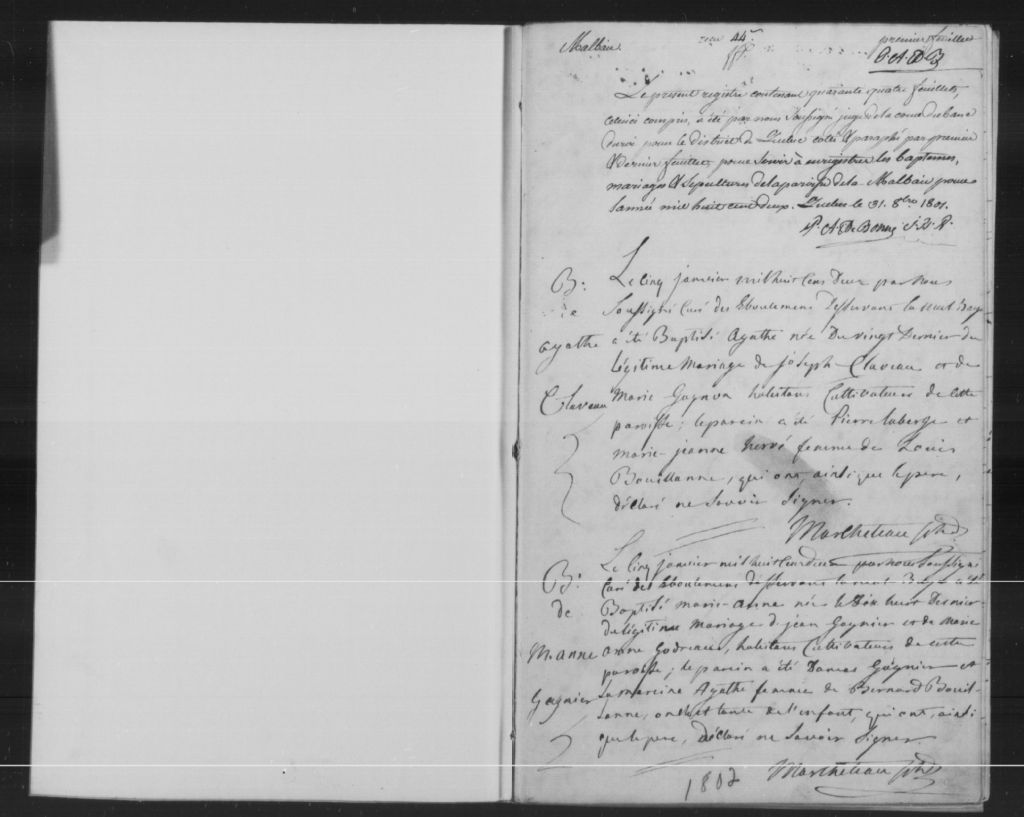 Malbaie.
44
premier feuillet
P. A. D B
Le present registre contenant quarante quatre feuillets,
celuici compris, a été par nous soussigné juge de la cour du banc
du roi pour le district de Quebec cotté & paraphé par premier
& dernier feuillet, pour servir à enregistrer les baptemes,
mariages & sepultures de la paroisse de la Malbaie pour
l'année mil huit cent deux. Quebec le 31. 8bre 1801.
P. A. De Bonne J. B. R.
B:
de
agathe
Claveau
Le Cinq janvier mil huit Cens Deux par Nous
Soussigné Curé des Eboulemens Desservant la mal Baye
a été Baptisé Agathe née Du vingt Dernier du
légitime Mariage de Joseph Claveau et de
Marie Gagnon habitans Cultivateurs de cette
paroisse; le parein a été Pierre laberge et
marie-jeanne hervé femme de Louis
Bouillanne, qui ont, ainsi que le pere,
déclaré ne Savoir Signer.
Marcheteau ptre
B:
de
M. anne
Gagnier
Le Cinq janvier mil huit Cens deux par nous Soussigné
Curé des Eboulemens desservant la mal Baye a été
Baptisé marie-anne née le dix huit Dernier
du légitime Mariage de jean Gagnier et de Marie
anne Godreau, habitans Cultivateurs de cette
paroisse; le parein a été Gagnier et
la mareine Agathe femme de Bernard Bouil-
lanne, oncle et tante de l'enfant, qui ont, ainsi
que le pere, déclaré ne Savoir Signer.
Marcheteau ptre
1802